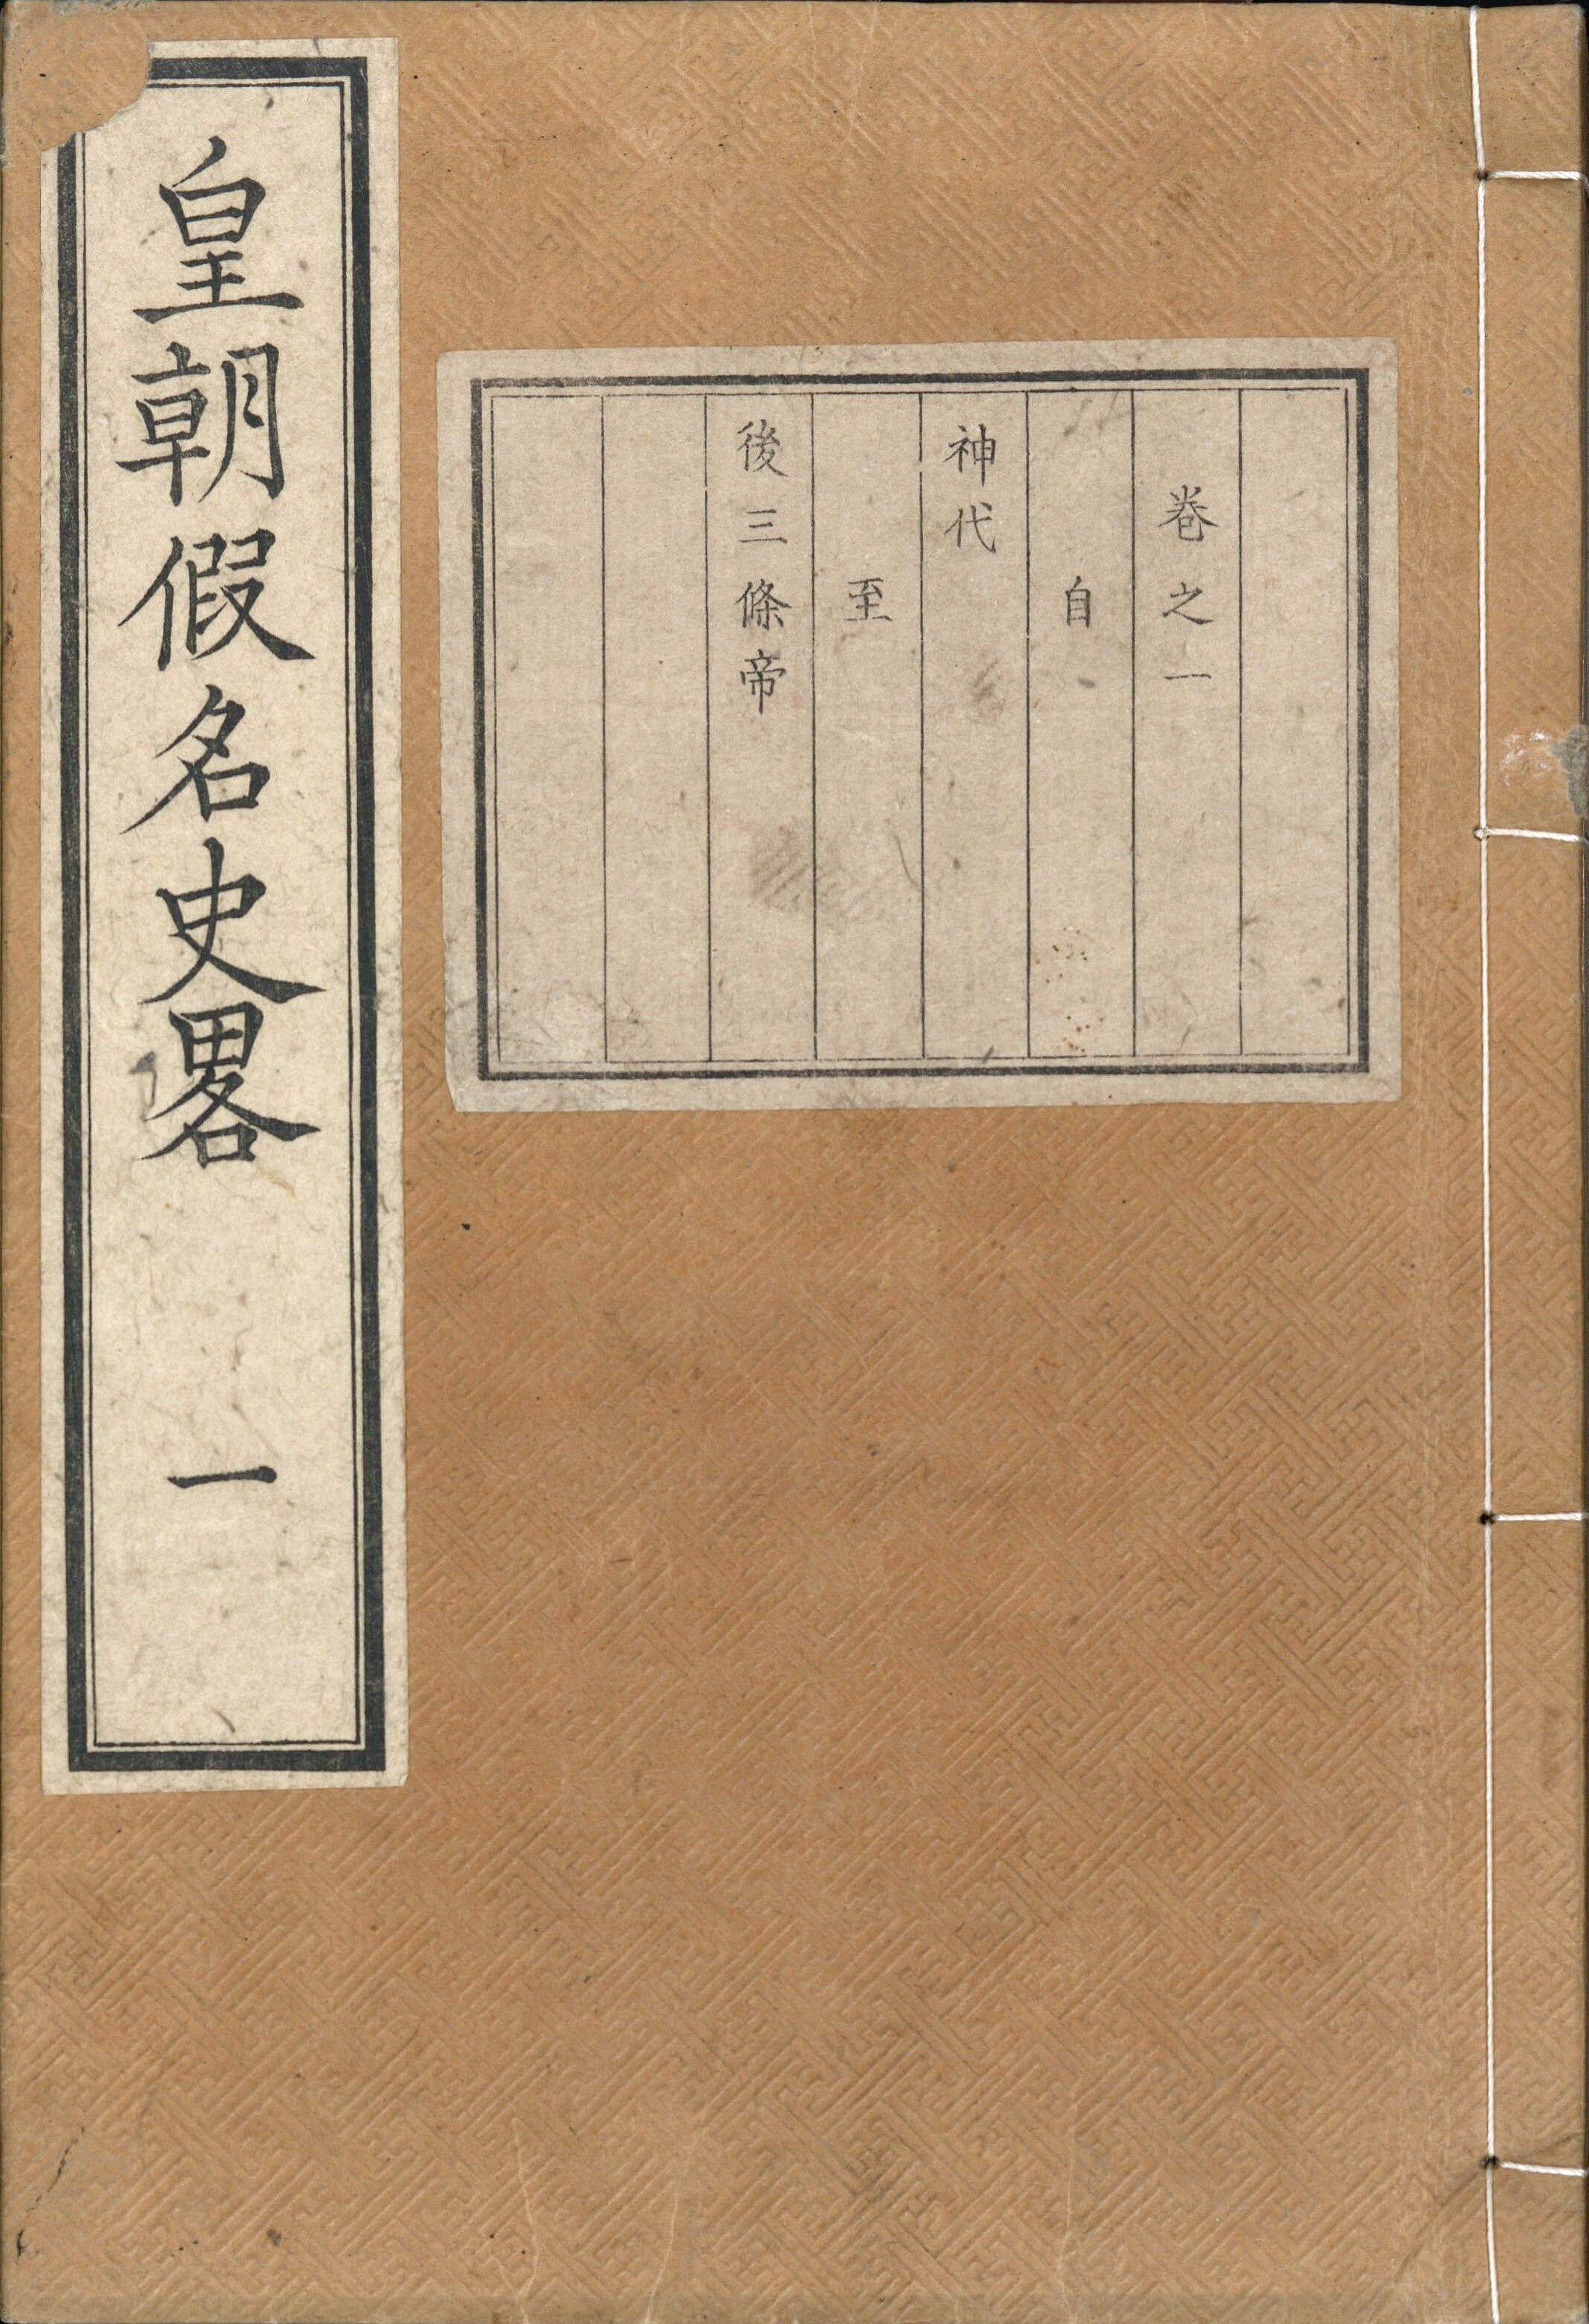 卷之一
自
神代
至
後三條帝
皇朝假名史畧 一